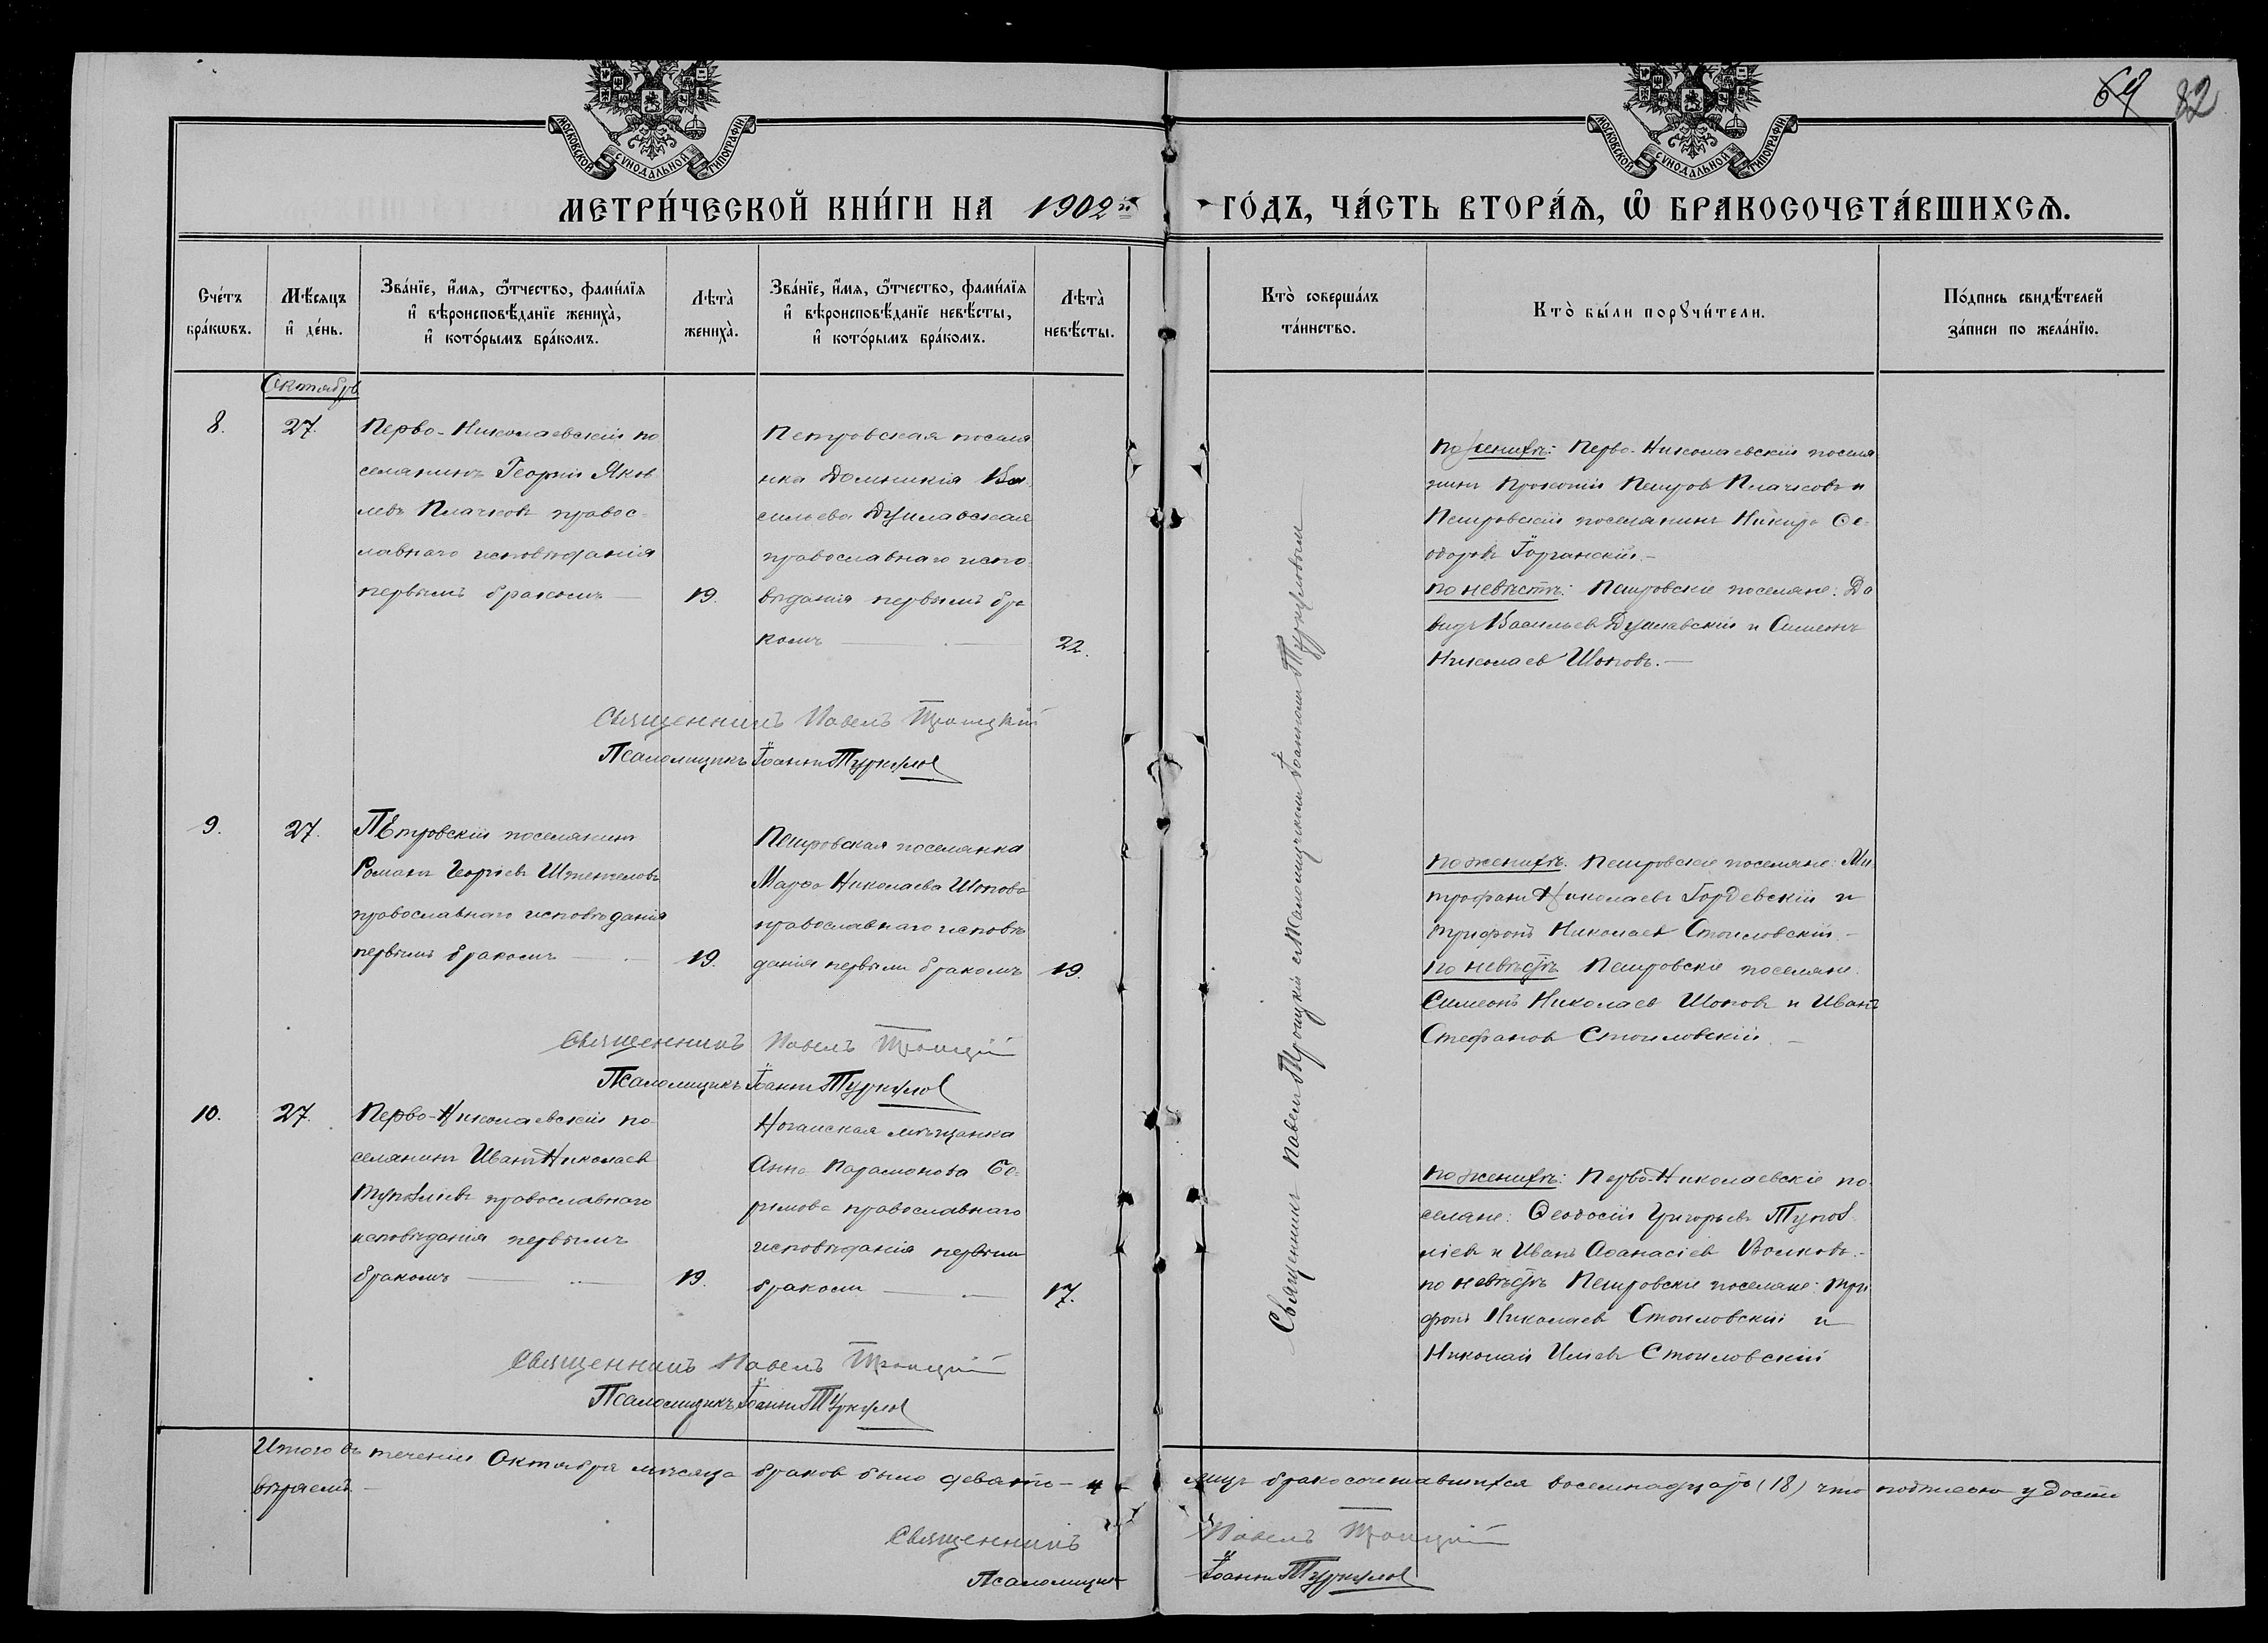 69 82
МОСКОВСКОЙ СѴНОДАЛЬНОЙ ТИПОГРАФИИ
МОСКОВСКОЙ СѴНОДАЛЬНОЙ ТИПОГРАФИИ
МЕТРИ́ЧЕСКОЙ КНИ́ГИ НА 1902й ГО́ДЪ, ЧА́СТЬ ВТОРА́Ѧ, Ѽ БРАКОСОЧЕТА́ВШИХСѦ.
Сче́тъ
бра́кѡвъ.
Мѣ́сяцъ
и҆ де́нь.
Зва́нїе, и҆́мѧ, ѻ҆́тчество, фами́лїѧ
и҆ вѣроисповѣ́данїе жениха̀,
и҆ кото́рымъ бра́комъ.
Лѣта̀
жениха̀.
Зва́нїе, и҆́мѧ, ѻ҆́тчество, фами́лїѧ
и҆ вѣроисповѣ́данїе невѣ́сты,
и҆ кото́рымъ бра́комъ.
Лѣта̀
невѣ́сты.
Кто̀ соверша́лъ
та́инство.
Кто̀ бы́ли порꙋчи́тели.
По́дпись свидѣ́телей
за́писи по жела́нїю.
Октябрь
8.
27.
Перво-Николаевскій по
селянинъ Георгій Яков
левъ Плачковъ правос-
лавнаго исповѣданія
первымъ бракомъ —
19.
Петровская поселя
нка Домникія Ва
сильева Душлавская
православнаго испо
вѣданія первымъ бра
комъ —
22.
По женихѣ: Перво-Николаевскій поселя
нинъ Прокопій Петровъ Плачковъ и
Петровскій поселянинъ Ѳе-
одоровъ Горганскій. —
по невѣстѣ: Петровскіе поселяне: Да
видъ Васильевъ Душлавскій и Симеонъ
Николаев Шоповъ. —
Священникъ Павелъ Троицкій
Псаломщикъ Іоаннъ Туркулов
Священникъ Павелъ Троицкій с псаломщикомъ Іоанномъ Туркуловым
9.
27.
Петровскій поселянинъ
Романъ Георгіевъ
православнаго исповѣданія
первымъ бракомъ —
19.
Петровская поселянка
Марѳа Николаева Шопова
православнаго исповѣ
данія первымъ бракомъ
19.
По женихѣ: Петровскіе поселяне: Ми
трофанъ Николаевъ Гордевскій и
Трифонъ Николаев Стоиловскій. —
По невѣстѣ Петровскіе поселяне.
Симеонъ Николаев Шопов и Иванъ
Стефанов Стоиловскій. —
Священникъ Павелъ Троицкій
Псаломщикъ Іоаннъ Туркулов
10.
27.
Перво-Николаевскій по
селянинъ Иванъ Николаев
православнаго
исповѣданія первымъ
бракомъ —
19.
Ногайская мѣщанка
Анна Парамонова
православнаго
исповѣданія первым
браком —
17.
По женихѣ: Перво-Николаевскіе по
селяне: Ѳеодосій Григорьевъ
и Иванъ Аѳанасіев Волковъ. —
по невѣстѣ Петровскіе поселяне: Три
фонъ Николаев Стоиловскій и
Николай Иліев Стоиловскій
Священникъ Павелъ Троицкій
Псаломщикъ Іоаннъ Туркулов
Итого въ теченіи Октября мѣсяца браков было девять — и лицъ бракосочетавшихся восемнадцать (18) что подписью удосто
вѣряемъ. —
Священникъ Павелъ Троицкій
Псаломщик Іоаннъ Туркулов